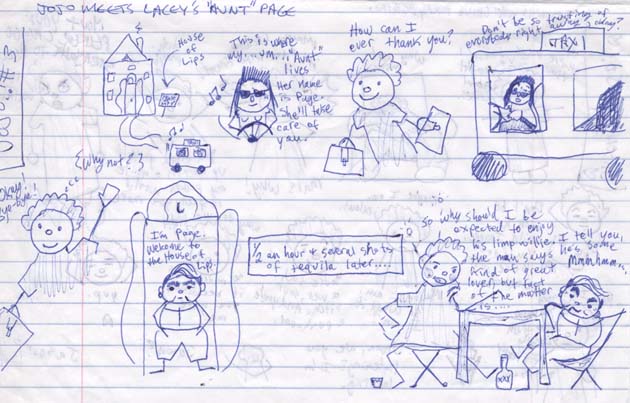 JOJO MEETS LACEY'S "AUNT" PAGE
House
of
Lips
This is where
my....um..."Aunt"
lives.
Her name
is Page.
She'll take
care of
you.
How can I
ever thank you?
Don't be so trusting of
everybody right
TAXI
#3
Okay!
Bye-bye!
{Why not?}
L
I'm Page.
Welcome to
the House of
Lips.
1/2 an hour & several shots
of tequila later....
So why should I be
expected to enjoy
his limp willie.
the man says
kind of great
lover, but fact
of the matter
is....
I tell you,
has some
Mmmhmmm.
XXX